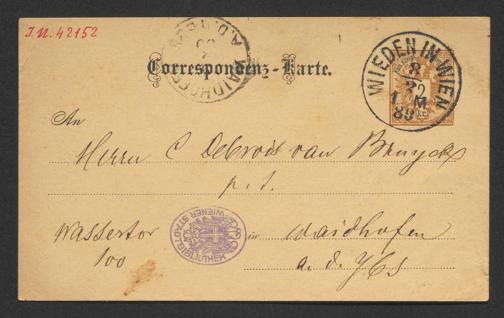 I.N. 42152
Correspondenz-Karte.
WIEDEN IN WIEN
8
2
1 M
89
An
Herrn C Debrois van Bruyck
p. t.
Wassertor
100
in Waidhofen
a. d. Ybs
WIENER STADTBIBLIOTHEK